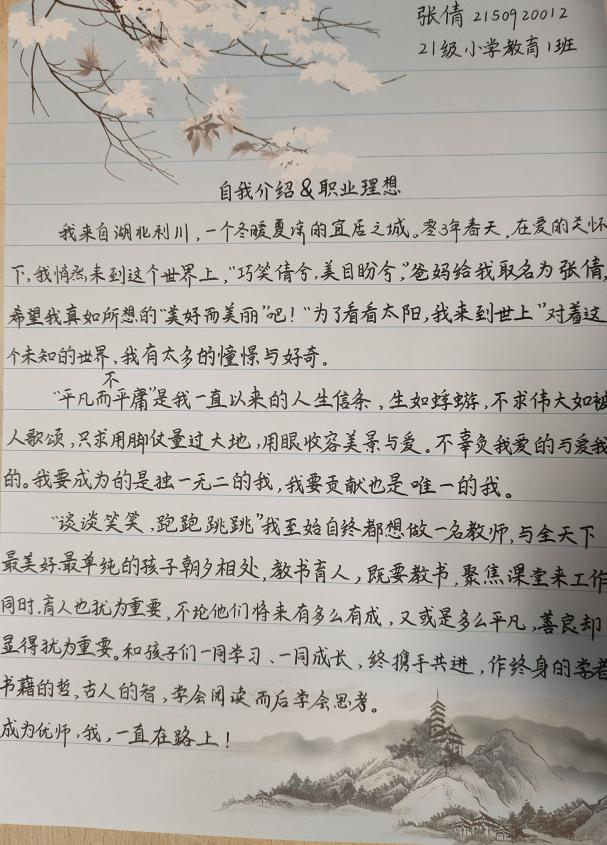 张倩 2150920012
21级小学教育1班
自我介绍&职业理想
我来自湖北利川，一个冬暖夏凉的宜居之城。零3年春天，在爱的关怀
下，我悄然来到这个世界上，“巧笑倩兮，美目盼兮，”爸妈给我取名为张倩，
希望我真如所想的“美好而美丽”吧！“为了看看太阳，我来到世上”对着这
个未知的世界，我有太多的憧憬与好奇。
“平凡而不平庸”是我一直以来的人生信条，生如蜉蝣，不求伟大如被
人歌颂，只求用脚仗量过大地，用眼收容美景与爱。不辜负我爱的与爱我
的。我要成为的是独一无二的我，我要贡献也是唯一的我。
“谈谈笑笑，跑跑跳跳”我至始自终都想做一名教师，与全天下
最美好最单纯的孩子朝夕相处，教书育人，既要教书，聚焦课堂来工作
同时，育人也犹为重要，不论他们将来有多么有成，又或是多么平凡，善良却
显得犹为重要。和孩子们一同学习、一同成长，终携手共进，作终身的学者
书籍的哲，古人的智，学会阅读而后学会思考。
成为优师，我，一直在路上！